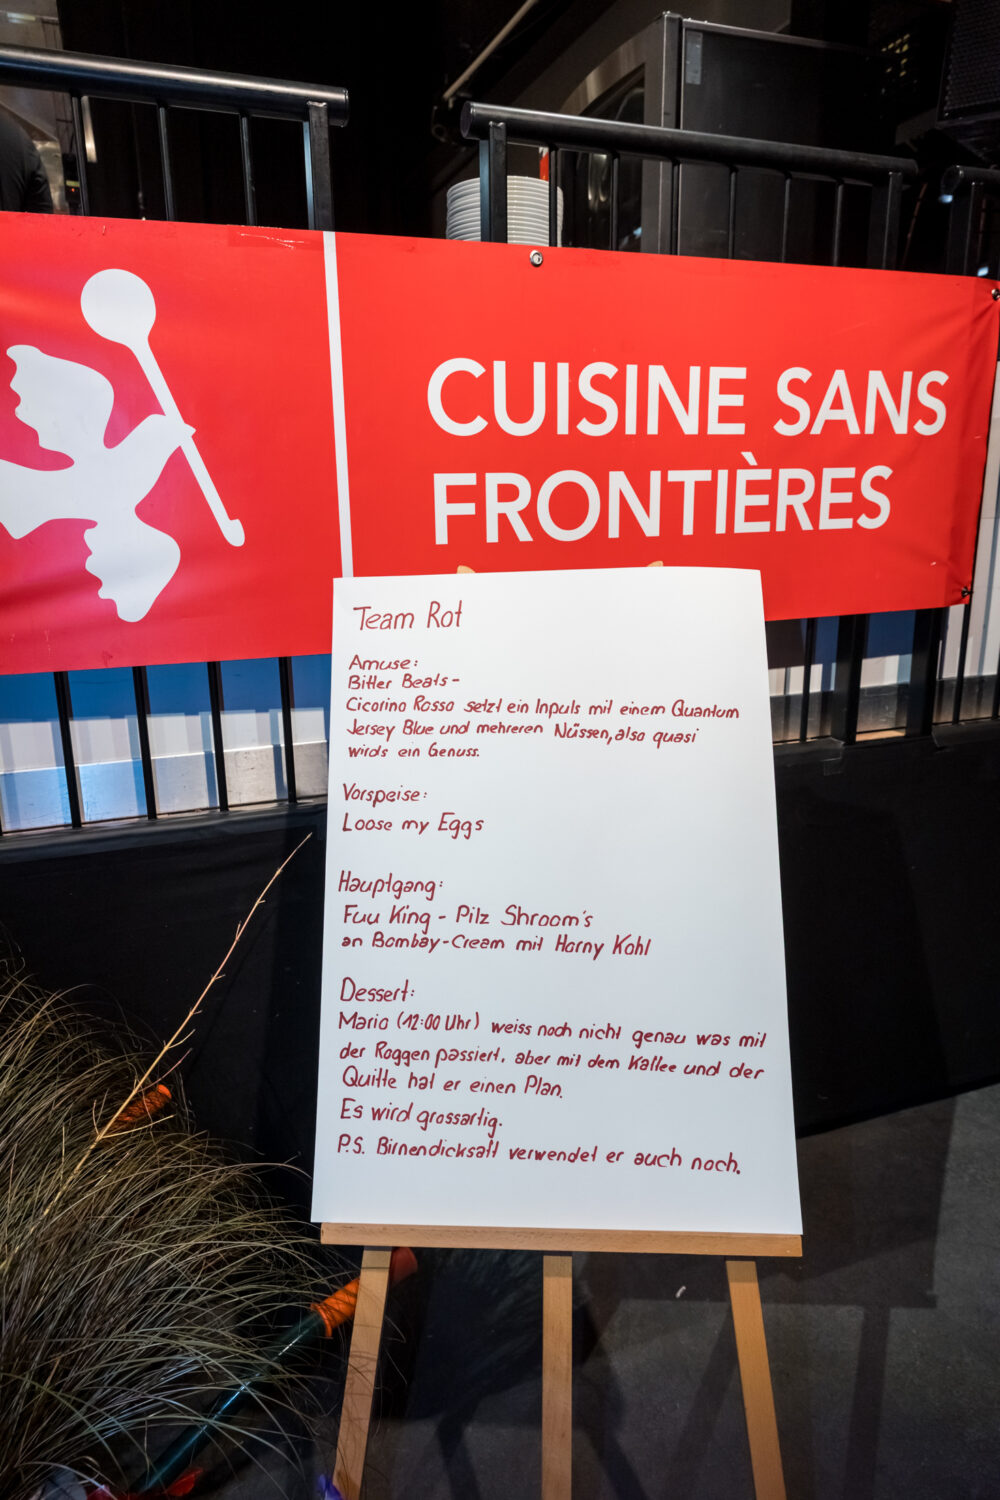 CUISINE SANS
FRONTIÈRES
Team Rot
Amuse:
Bitter Beats-
Cicorino Rosso setzt ein Inpuls mit einem Quantum
Jersey Blue und mehreren Nüssen, also quasi
wirds ein Genuss.
Vorspeise:
Loose my Eggs
Hauptgang:
Fuu King - Pilz Shroom's
an Bombay-Cream mit Horny Kohl
Dessert:
Mario (12:00 Uhr) weiss noch nicht genau was mit
der Roggen passiert, aber mit dem Kaffee und der
Quitte hat er einen Plan.
Es wird grossartig.
P.S. Birnendicksaft verwendet er auch noch.